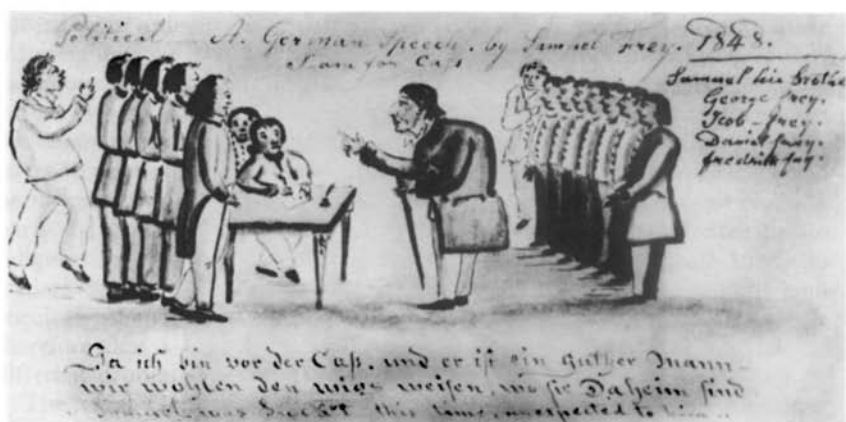 Political — A. German Speech. by Samuel Frey. 1848.
I am for Cass
Samuel his Brothe
George frey.
Jcob - frey.
Daniel frey.
fredrick frey.
Ja ich bin vor der Caß. und er ist ein guther Mann -
wir wohlen den wigs weisen, wo sie Daheim sind
Samuel, was this time, unexpected to him